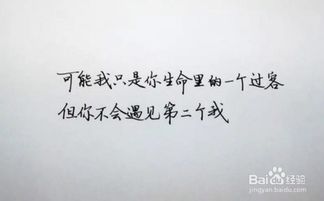 可能我只是你生命里的一个过客
但你不会遇见第二个我
Bai du 经验
jingyan.baidu.com